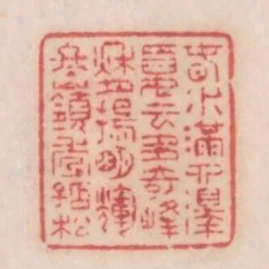 春水滿四澤
夏雲多奇峰
秋月揚明輝
冬嶺秀孤松